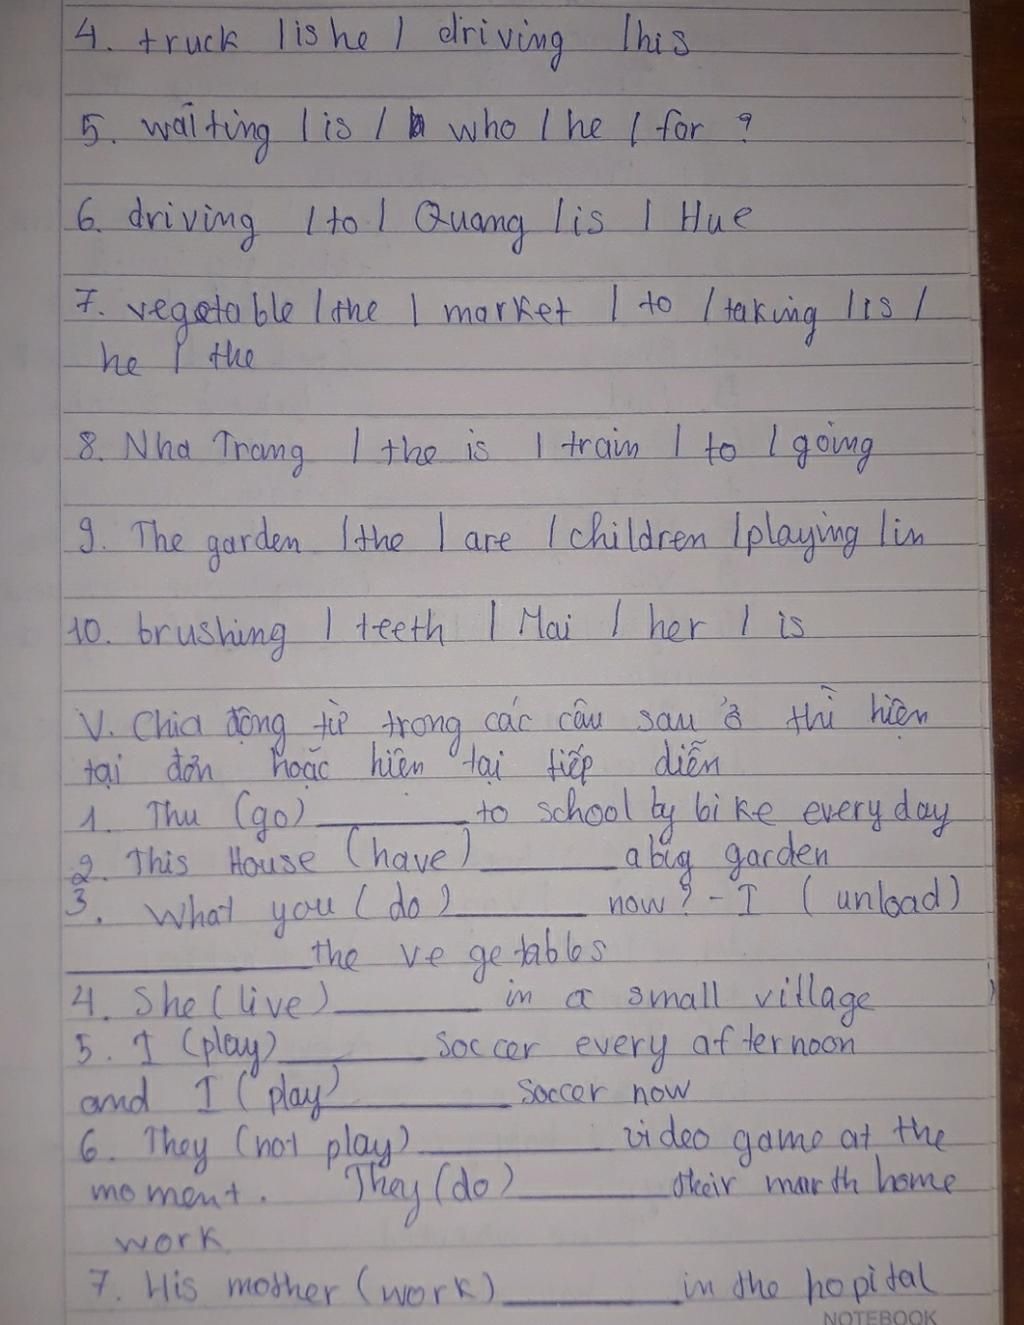 4. truck / is he / driving / his
5. waiting / is / who / he / for ?
6. driving / to / Quang / is / Hue
7. vegetable / the / market / to / taking / is /
he / the
8. Nha Trang / the is / train / to / going
9. The garden / the / are / children / playing / in
10. brushing / teeth / Mai / her / is
V. Chia động từ trong các câu sau ở thì hiện
tại đơn hoặc hiện tại tiếp diễn
1. Thu (go) ________ to school by bike every day
2. This House (have) ________ a big garden
3. What you (do) ________ now? - I (unload)
________ the vegetables
4. She (live) ________ in a small village
5. I (play) ________ soccer every afternoon
and I (play) ________ soccer now
6. They (not play) ________ video game at the
moment. They (do) ________ their home
work
7. His mother (work) ________ in the hopital
NOTEBOOK